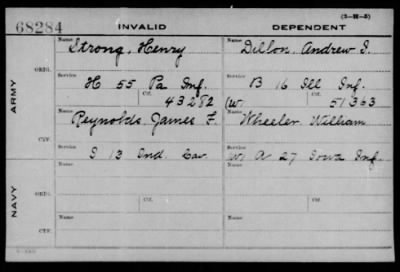 (3-H-5)
68284 INVALID DEPENDENT
Name Strong, Henry Name Dillon, Andrew J.
ORIG. Service H 55 Pa Inf. Service B 16 Ill Inf.
Ctf. 43282 (W. Ctf. 51363
ARMY
Name Reynolds, James F. Name Wheeler, William
Service G 13 Ind. Cav. W. A 27 Iowa Inf.
Name Name
ORIG. Service Ctf. Service Ctf.
NAVY
Name Name
Service Service